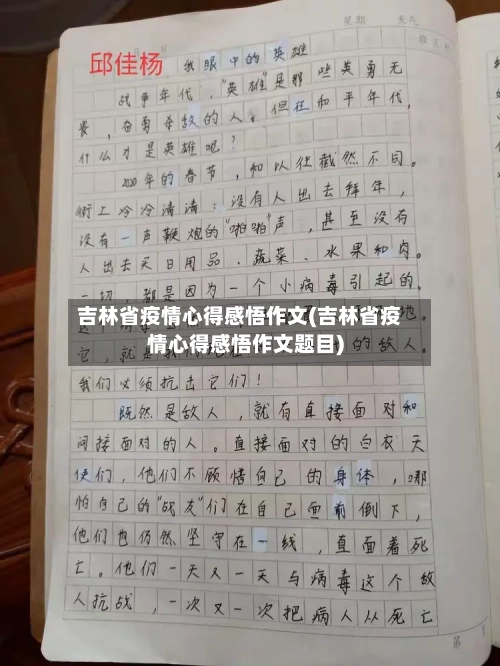 星期
邱佳杨
我眼中的英雄
战争年代，"英雄"是那些英勇无
畏，奋勇杀敌的人。但在和平年代，
什么才是英雄呢？
2020年的春节，和以往截然不同。
街上冷冷清清：没有人出去拜年，
没有一声鞭炮的"啪啪"声，甚至没有
人出去买日用品、蔬菜、水果和肉。
一切，都是因为一个小病毒引起的。
吉林省疫情心得感悟作文(吉林省疫
情心得感悟作文题目)
它，就是
的敌人。
我们必须抗击它们！
既然是敌人，就有直接面对和
间接面对的人。直接面对的白衣天
使们，他们不顾惜自己的身体，哪
怕自己的"战友"们在自己面前倒下，
他们也仍然坚守在一线，直面着死
亡。他们一天又一天与病毒这个敌
人抗战，一次又一次把病人从死亡